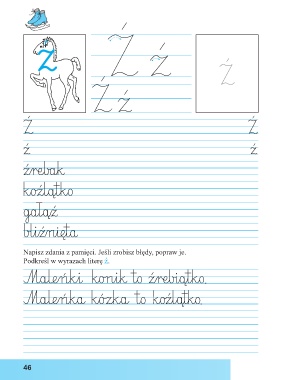 Ź
Ź ź
Ź
Ź ź
Ź Ź
ź ź
źrebak
koźlątko
gałąź
bliźnięta
Napisz zdania z pamięci. Jeśli zrobisz błędy, popraw je.
Podkreśl w wyrazach literę ź.
Maleńki konik to źrebiątko.
Maleńka kózka to koźlątko.
46